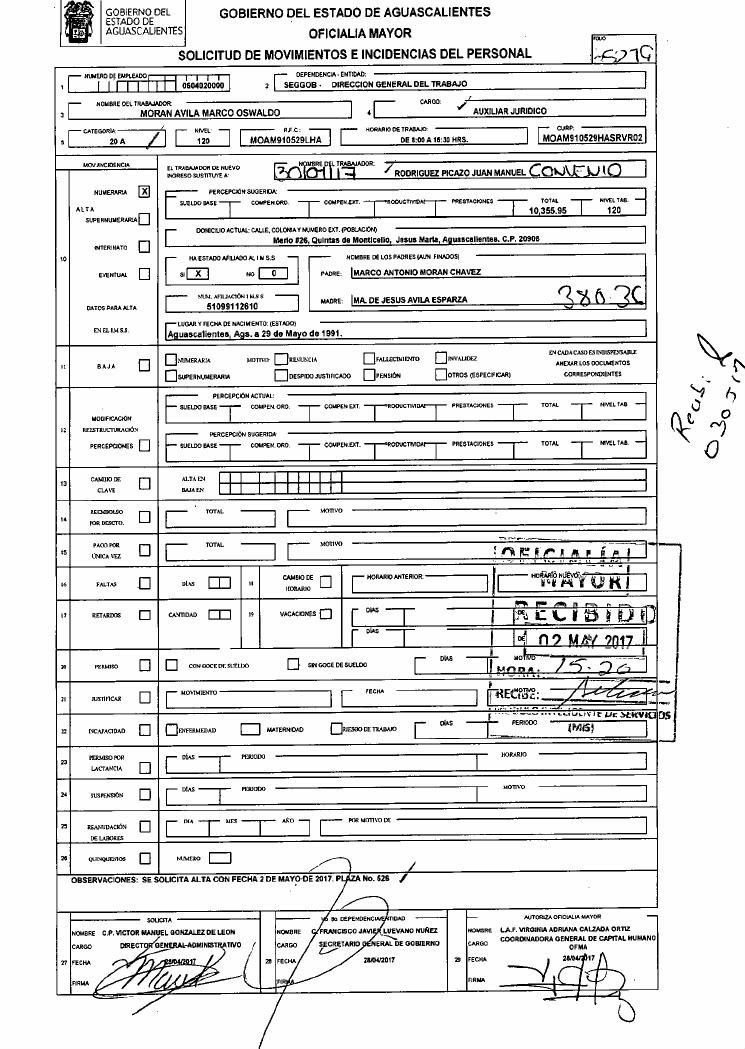 GOBIERNO DEL
ESTADO DE
AGUASCALIENTES
GOBIERNO DEL ESTADO DE AGUASCALIENTES
OFICIALIA MAYOR
SOLICITUD DE MOVIMIENTOS E INCIDENCIAS DEL PERSONAL
FOLIO
1 NUMERO DE EMPLEADO 0604020000
2 DEPENDENCIA - ENTIDAD: SEGGOB - DIRECCION GENERAL DEL TRABAJO
3 NOMBRE DEL TRABAJADOR: MORAN AVILA MARCO OSWALDO
4 CARGO: AUXILIAR JURIDICO
5 CATEGORÍA: 20 A NIVEL: 120 R.F.C.: MOAM910529LHA HORARIO DE TRABAJO: DE 8:00 A 15:30 HRS. CURP: MOAM910529HASRVR02
MOV/INCIDENCIA
EL TRABAJADOR DE NUEVO INGRESO SUSTITUYE A: NOMBRE DEL TRABAJADOR: RODRIGUEZ PICAZO JUAN MANUEL CONVENIO
30/01/17
NUMERARIA X
PERCEPCIÓN SUGERIDA:
SUELDO BASE COMPEN.ORD. COMPEN.EXT. PRODUCTIVIDAD PRESTACIONES TOTAL NIVEL TAB.
10,355.95 120
ALTA
SUPERNUMERARIA
DOMICILIO ACTUAL: CALLE, COLONIA Y NUMERO EXT. (POBLACIÓN)
Merlo #26, Quintas de Monticello, Jesus Maria, Aguascalientes. C.P. 20908
INTERINATO
10
HA ESTADO AFILIADO AL I M S.S
SI X NO 0
NOMBRE DE LOS PADRES (AUN FINADOS)
PADRE: MARCO ANTONIO MORAN CHAVEZ
EVENTUAL
NUM. AFILIACIÓN I M S S
51099112610
MADRE: MA. DE JESUS AVILA ESPARZA
DATOS PARA ALTA
EN EL I M.S.S.
LUGAR Y FECHA DE NACIMIENTO: (ESTADO)
Aguascalientes, Ags. a 29 de Mayo de 1991.
11 BAJA
NUMERARIA MOTIVO: RENUNCIA FALLECIMIENTO INVALIDEZ
SUPERNUMERARIA DESPIDO JUSTIFICADO PENSIÓN OTROS (ESPECIFICAR)
EN CADA CASO ES INDISPENSABLE
ANEXAR LOS DOCUMENTOS
CORRESPONDIENTES
Recibi
PERCEPCIÓN ACTUAL:
SUELDO BASE COMPEN. ORD. COMPEN EXT. PRODUCTIVIDAD PRESTACIONES TOTAL NIVEL TAB
12 MODIFICACIÓN
REESTRUCTURACIÓN
PERCEPCIONES
PERCEPCIÓN SUGERIDA:
SUELDO BASE COMPEN. ORD. COMPEN.EXT. PRODUCTIVIDAD PRESTACIONES TOTAL NIVEL TAB.
13 CAMBIO DE CLAVE
ALTA EN
BAJA EN
14 REEMBOLSO POR DESCTO. TOTAL MOTIVO
15 PAGO POR ÚNICA VEZ TOTAL MOTIVO
16 FALTAS DÍAS 18 CAMBIO DE HORARIO HORARIO ANTERIOR: HORARIO NUEVO:
17 RETARDOS CANTIDAD 19 VACACIONES DÍAS DE
DÍAS DE
OFICIALÍA
MAYOR
RECIBIDO
02 MAY 2017
HORA: 15:20
RECIBE:
DE SERVICIOS
(MIS)
20 PERMISO CON GOCE DE SUELDO SIN GOCE DE SUELDO DÍAS MOTIVO
21 JUSTIFICAR MOVIMIENTO FECHA MOTIVO
22 INCAPACIDAD ENFERMEDAD MATERNIDAD RIESGO DE TRABAJO DÍAS PERIODO
23 PERMISO POR LACTANCIA DÍAS PERIODO HORARIO
24 SUSPENSIÓN DÍAS PERIODO MOTIVO
25 REANUDACIÓN DE LABORES DIA MES AÑO POR MOTIVO DE
26 QUINQUENIOS NUMERO
OBSERVACIONES: SE SOLICITA ALTA CON FECHA 2 DE MAYO DE 2017. PLAZA No. 526
SOLICITA
NOMBRE C.P. VICTOR MANUEL GONZALEZ DE LEON
CARGO DIRECTOR GENERAL ADMINISTRATIVO
27 FECHA 28/04/2017
FIRMA
Vo Bo DEPENDENCIA/ENTIDAD
NOMBRE C. FRANCISCO JAVIER LUEVANO NUÑEZ
CARGO SECRETARIO GENERAL DE GOBIERNO
28 FECHA 28/04/2017
FIRMA
AUTORIZA OFICIALIA MAYOR
NOMBRE L.A.F. VIRGINIA ADRIANA CALZADA ORTIZ
CARGO COORDINADORA GENERAL DE CAPITAL HUMANO
OFMA
29 FECHA 28/04/2017
FIRMA